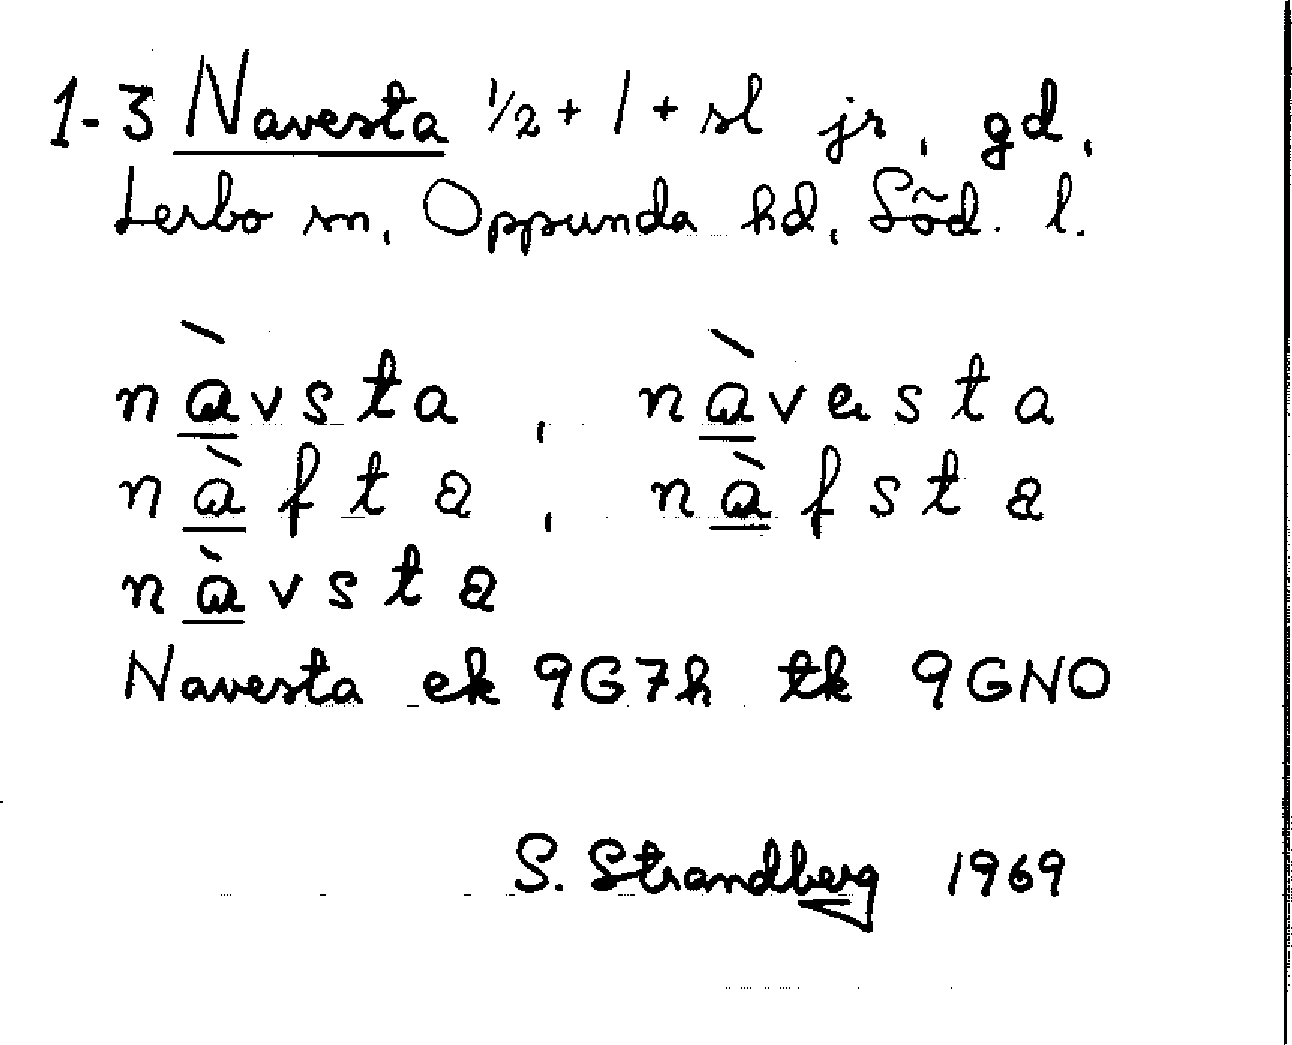 1-3 Navesta ½ + 1 + sl jr, gd,
Lerbo sn, Oppunda hd, Söd. l.
nàvsta, nàvesta
nàfta, nàfsta
nàvsta
Navesta ek 9G7h tk 9GNO
S. Strandberg 1969